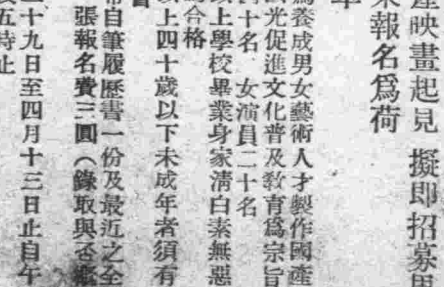 產映畫起見 擬即招募男
報名爲荷
爲養成男女藝術人才製作國產
光促進文化普及教育爲宗旨
十名 女演員二十名
以上學校畢業身家淸白素無惡
合格
以上四十歲以下未成年者須有
帶自筆履歷書一份及最近之全
張報名費三圓（錄取與否
十九日至四月十三日止自午
五時止